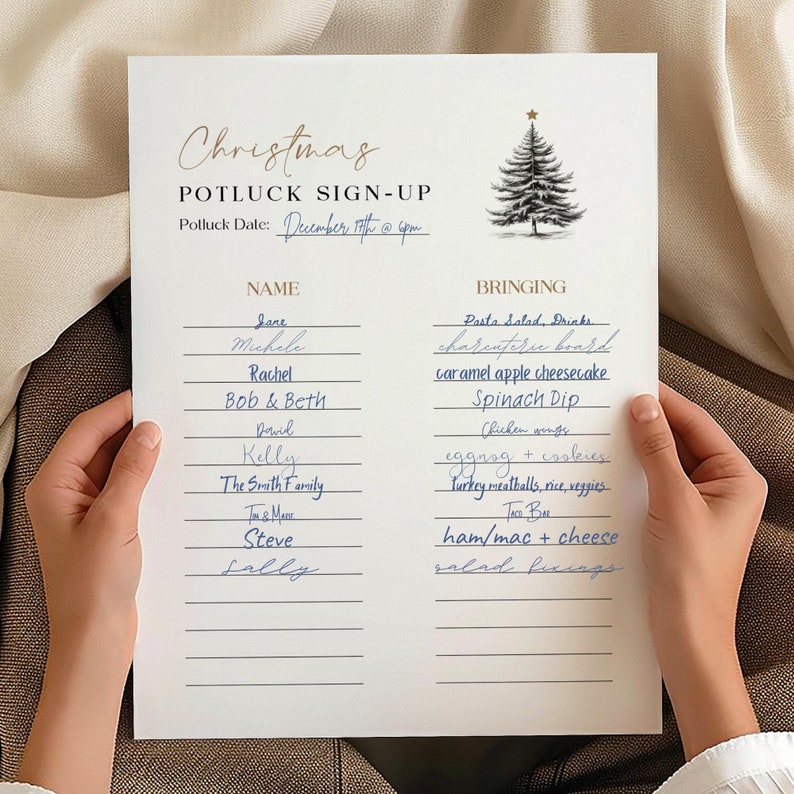 Christmas
POTLUCK SIGN-UP
Potluck Date: December 17th @ 6pm
NAME BRINGING
Jane Pasta Salad, Drinks
Michele charcuterie board
Rachel caramel apple cheesecake
Bob & Beth Spinach Dip
David Chicken wings
Kelly eggnog + cookies
The Smith Family turkey meatballs, rice, veggies
Tim & Marie Taco Bar
Steve ham/mac + cheese
Sally salad fixings